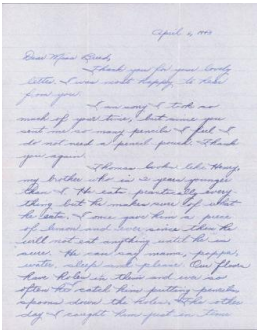 April 6, 1943
Dear Miss Breed,
Thank you for your lovely
letter. I was most happy to hear
from you.
I am sorry I took so
much of your time, but since you
sent me so many pencils I feel I
do not need a pencil pouch. Thank
you again.
Thomas looks like Henry,
my brother who is 2 years younger
than I. He eats practically every
thing but he makes sure of what
he eats. I once gave him a piece
of lemon and ever since then he
will not eat anything until he is
sure. He can say mama, pappa,
water, sleep and please. Our floors
have holes in them and ever so
often we catch him putting pencils,
spoons down the holes. The other
day I caught him just in time